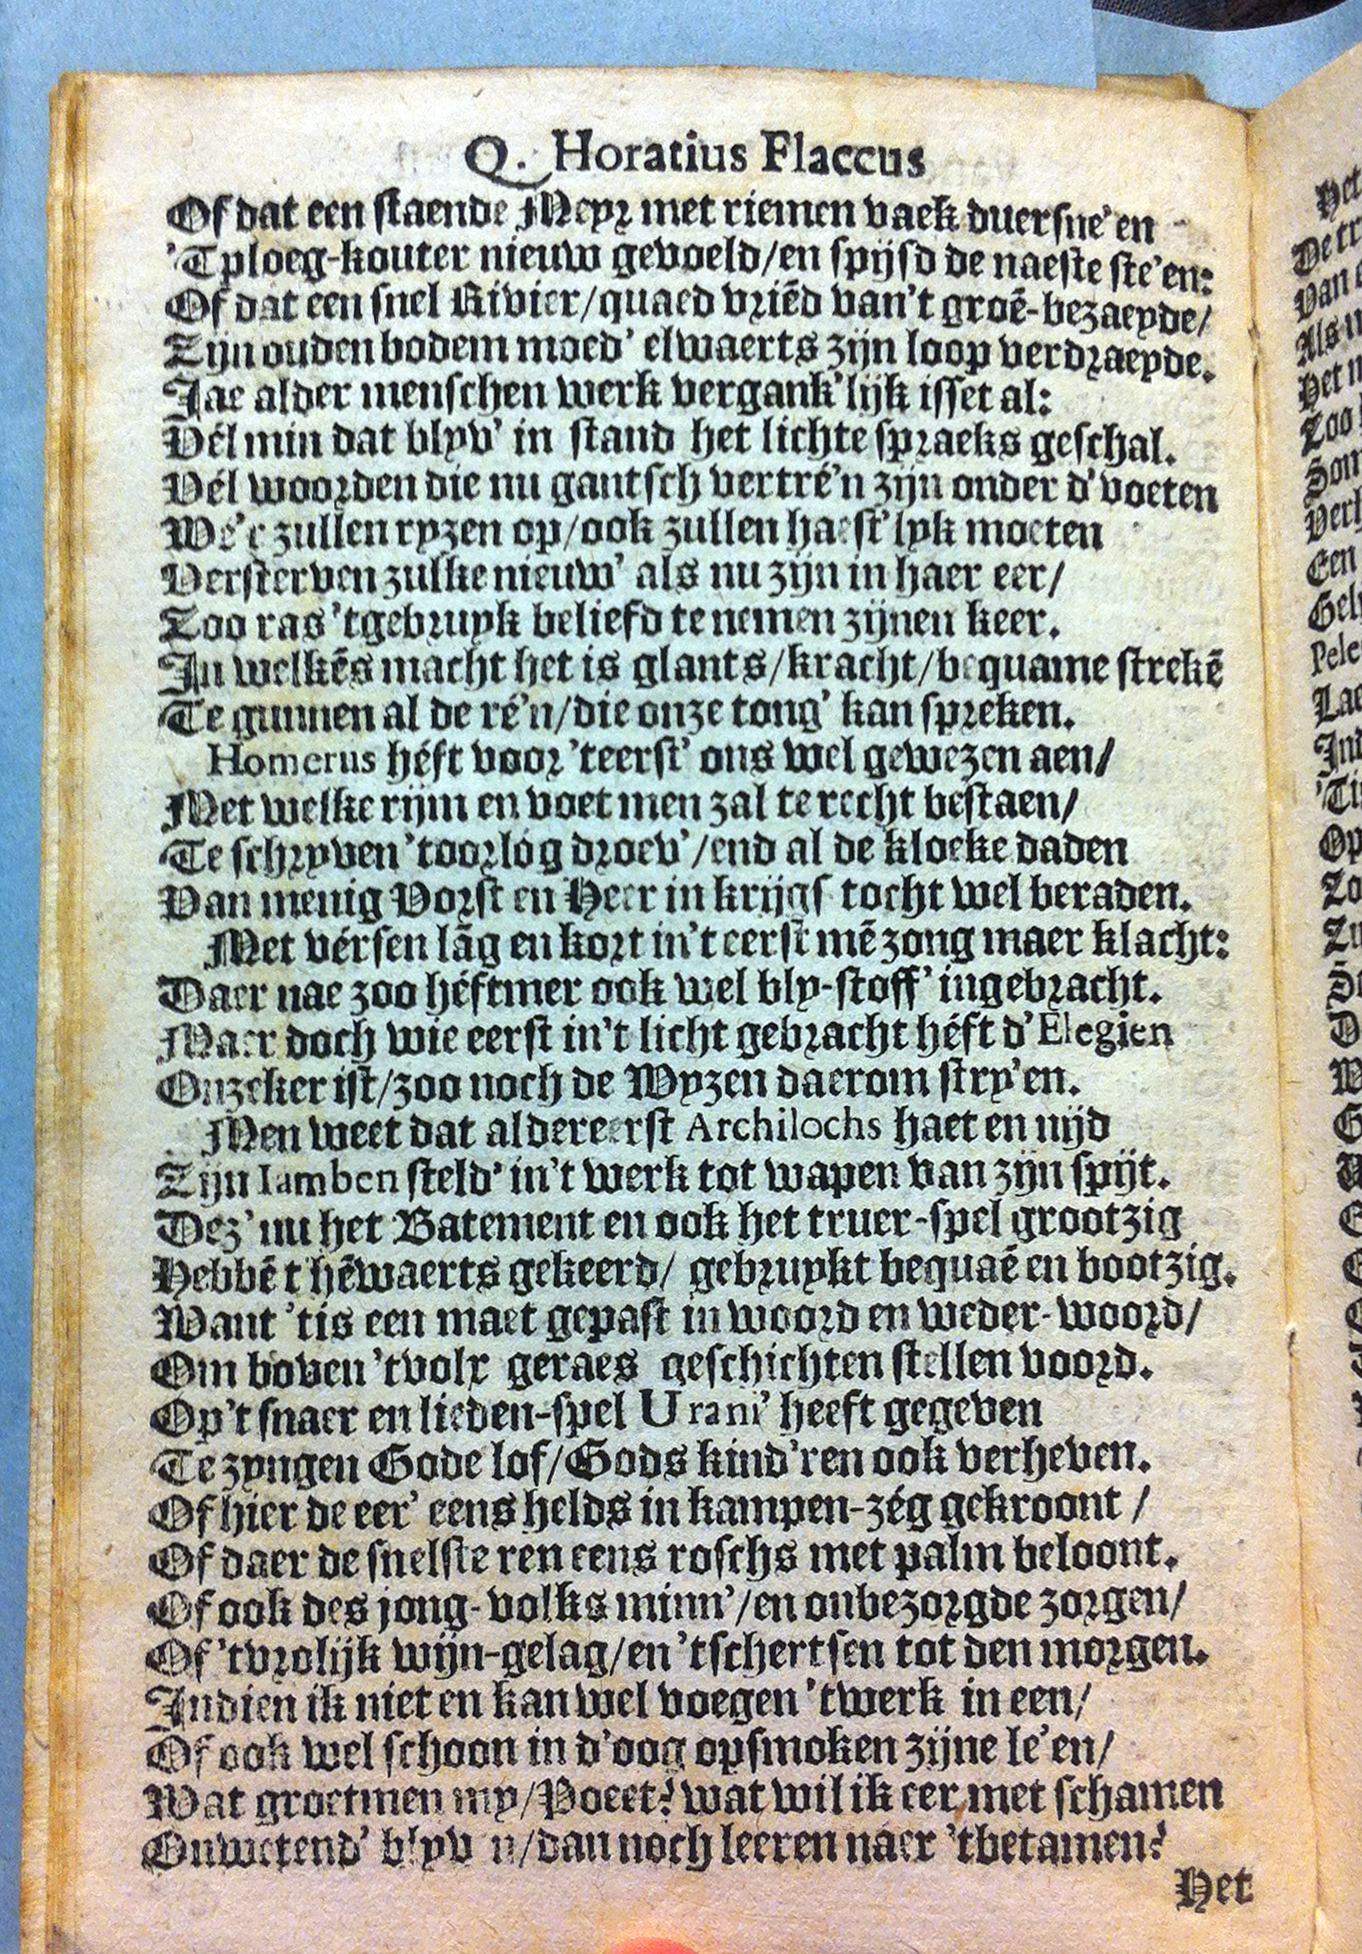 Q. Horatius Flaccus
Of dat een staende Meyr met riemen vaek duersne'en
'Tploeg-kouter nieuw gevoeld/en spijsd de naeste ste'en:
Of dat een snel Rivier/quaed vriēd van't groē-bezaeyde/
Zijn ouden bodem moed' elwaerts zijn loop verdraeyde.
Jae alder menschen werk vergank'lijk isset al:
Vél min dat blyv' in stand het lichte spraeks geschal.
Vél woorden die nu gantsch vertré'n zijn onder d'voeten
We'r zullen ryzen op/ook zullen haest'lyk moeten
Versterven zulke nieuw' als nu zijn in haer eer/
Zoo ras 'tgebruyk beliefd te nemen zijnen keer.
In welkēs macht het is glants/kracht/bequame strekē
Te gunnen al de ré'n/die onze tong' kan spreken.
Homerus héft voor 'teerst' ons wel gewezen aen/
Met welke rijm en voet men zal te recht bestaen/
Te schryven 'toorlóg droev'/end al de kloeke daden
Van menig Vorst en Heer in krijgs tocht wel beraden.
Met vérsen lāg en kort in't eerst mē zong maer klacht:
Daer nae zoo héftmer ook wel bly-stoff' ingebracht.
Maer doch wie eerst in't licht gebracht héft d'Elegien
Onzeker ist/zoo noch de Wyzen daerom stry'en.
Men weet dat aldereerst Archilochs haet en nijd
Zijn Iamben steld' in't werk tot wapen van zijn spijt.
Dez' nu het Batement en ook het truer-spel grootzig
Hebbē t'hēwaerts gekeerd/ gebruykt bequaē en bootzig.
Want 'tis een maet gepast in woord en weder-woord/
Om boven 'tvolx geraes geschichten stellen voord.
Op't snaer en lieden-spel Urani' heeft gegeven
Te zyngen Gode lof/Gods kind'ren ook verheven.
Of hier de eer' eens helds in kampen-zég gekroont /
Of daer de snelste ren eens roschs met palm beloont.
Of ook des jong-volks minn'/en onbezorgde zorgen/
Of 'tvrolijk wijn-gelag/en 'tschertsen tot den morgen.
Indien ik niet en kan wel voegen 'twerk in een/
Of ook wel schoon in d'oog opsmoken zijne le'en/
Wat groetmen my/Poeet? wat wil ik eer met schamen
Onwetend' blyv n/dan noch leeren naer 'tbetamen?
Het